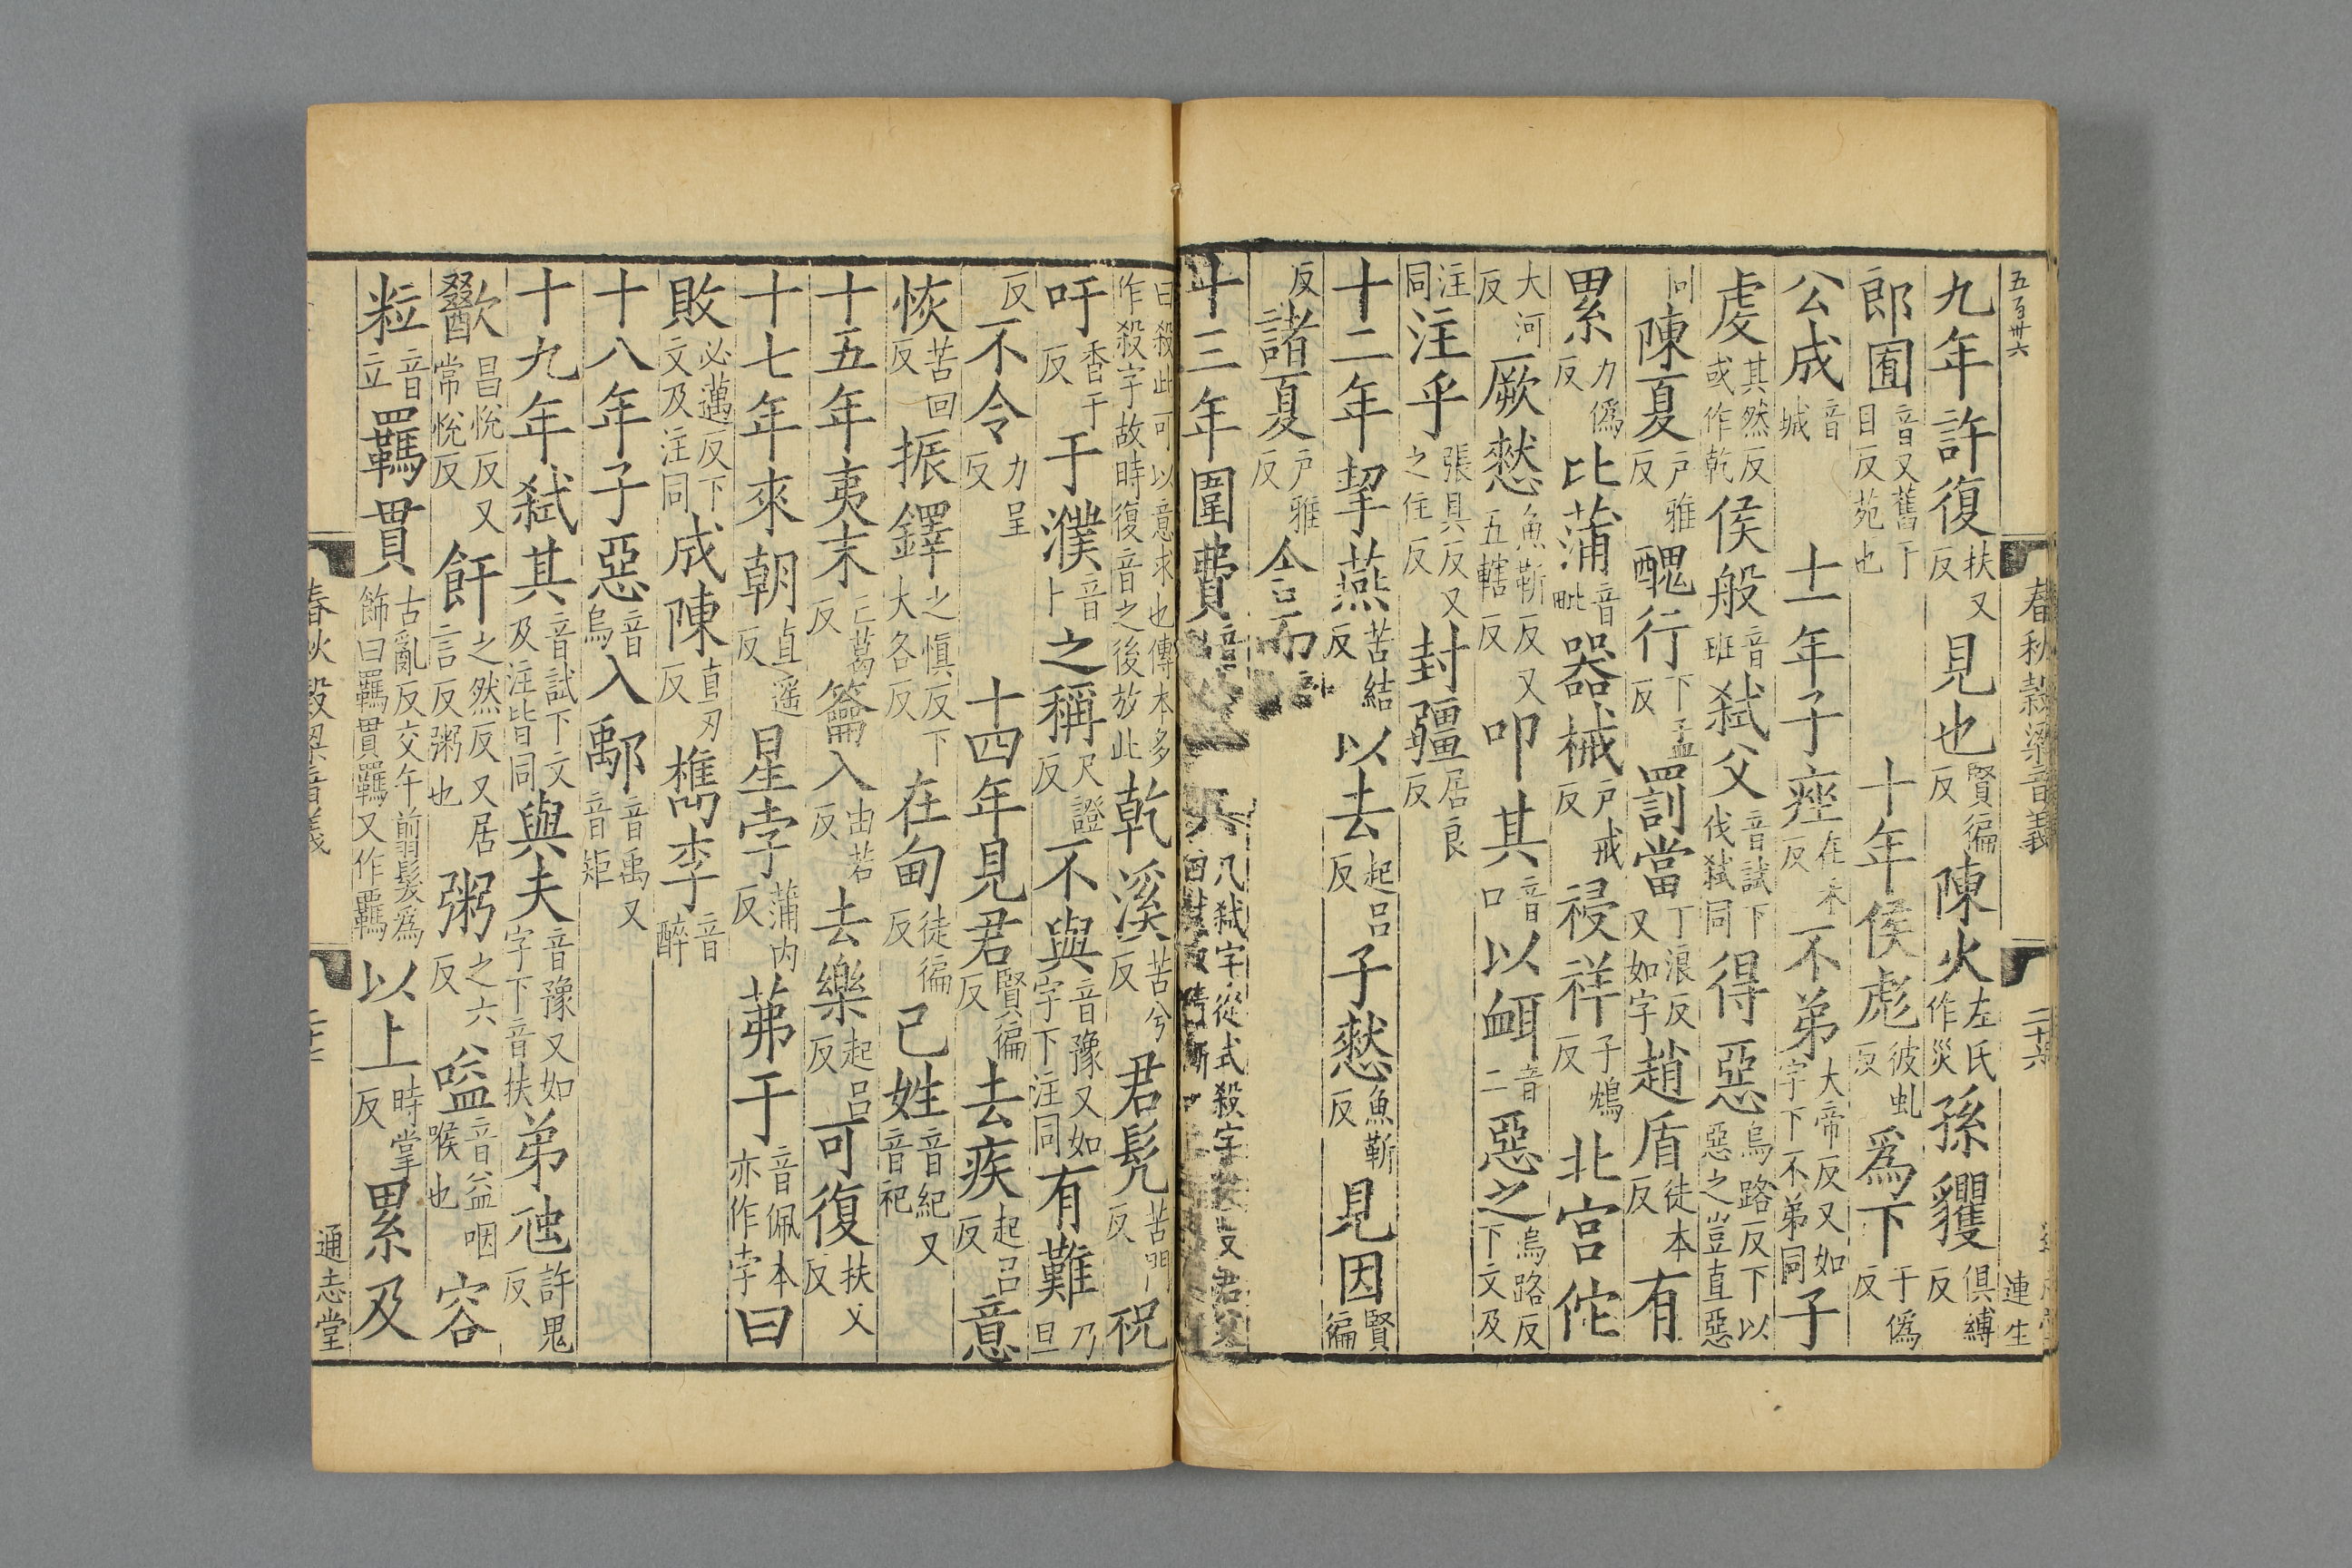 五百卅六
春秋穀梁音義
二十六
連生
九年許復扶又反見也賢徧反陳火左氏作災孫貜俱縛反
郎囿音又舊于目反苑也十年侯彪彼虬反爲下于僞反
公成音城十一年子痤在禾反不弟大帝反又如字下不弟同子
虔其然反或作乾侯般音班弑父音試下伐弑同得惡烏路反下以惡之豈直惡
同陳夏戶雅反醜行下孟反罰當丁浪反又如字趙盾徒本反有
累力僞反比蒲音毗器械戶戒反祲祥子鴆反北宮佗
大河反厥憖魚靳反又五轄反叩其音口以衈音二惡之烏路反下文及
注同注乎張具反又之住反封疆居良反
十二年挈燕苦結反以去起呂反子憖魚靳反見因賢徧
反諸夏戶雅反舍而
十三年圍費音凡弑字從式殺字
曰殺此可以意求也傳本多作殺字故時復音之後放此乾溪苦兮反君髡苦門反祝
吁香于反于濮音卜之稱尺證反不與音豫又如字下注同有難乃旦
反不令力呈反十四年見君賢徧反去疾起呂反意
恢苦回反振鐸之愼反下大各反在甸徒徧反己姓音紀又音祀
十五年夷末亡葛反籥入由若反去樂起呂反可復扶又反
十七年來朝直遥反星孛蒲内反茀于音佩本亦作孛曰
敗必邁反下文及注同成陳直刃反檇李音醉
十八年子惡音烏入鄅音禹又音矩
十九年弑其音試下文及注皆同與夫音豫又如字下音扶弟虺許鬼反
歠昌悅反又常悅反飦之然反又居言反粥也粥之六反嗌音益咽喉也容
粒音立羈貫古亂反交午翦髮爲飾曰羈貫羈又作羇以上時掌反累及
春秋穀梁音義
通志堂